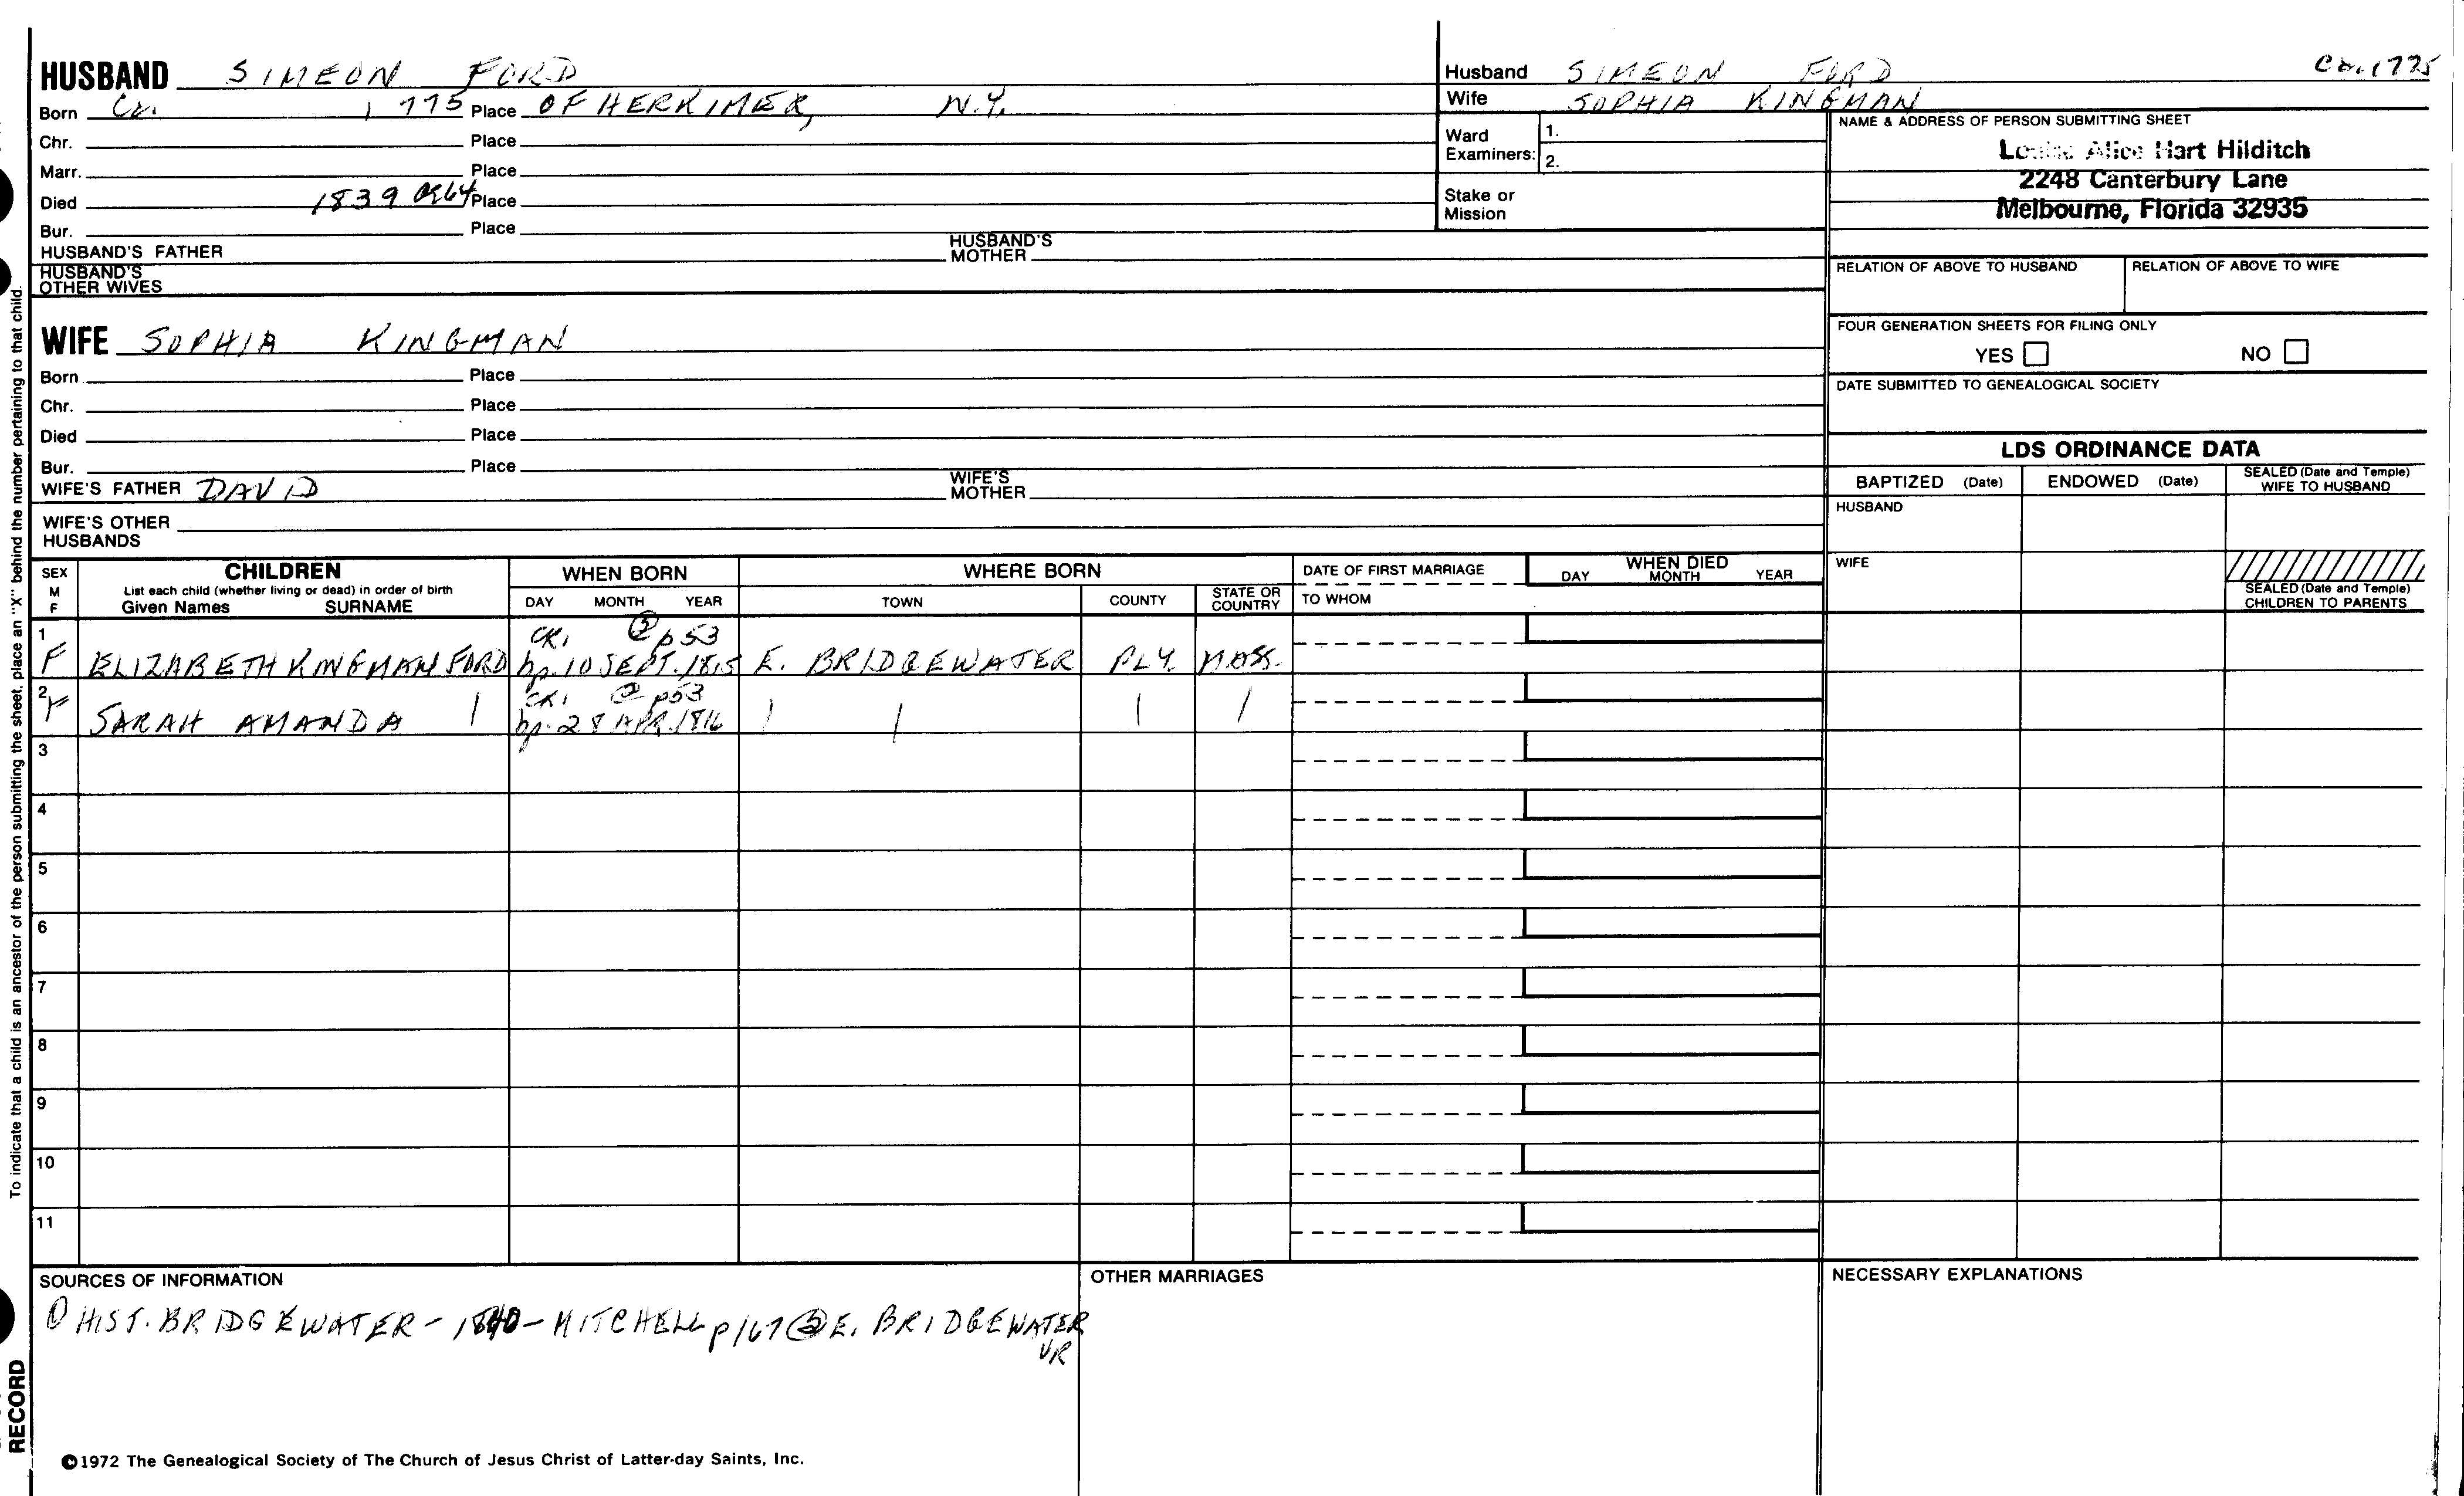 HUSBAND SIMEON FORD
Born Ca. 1775 Place OF HERKIMER, N.Y.
Chr. Place
Marr. Place
Died 1839 Place
Bur. Place
HUSBAND'S FATHER HUSBAND'S MOTHER
HUSBAND'S OTHER WIVES
WIFE SOPHIA KINGMAN
Born Place
Chr. Place
Died Place
Bur. Place
WIFE'S FATHER DAVID WIFE'S MOTHER
WIFE'S OTHER HUSBANDS
Husband SIMEON FORD Ca. 1775
Wife SOPHIA KINGMAN
Ward Examiners: 1.
2.
Stake or Mission
NAME & ADDRESS OF PERSON SUBMITTING SHEET
Louise Alice Hart Hilditch
2248 Canterbury Lane
Melbourne, Florida 32935
RELATION OF ABOVE TO HUSBAND RELATION OF ABOVE TO WIFE
FOUR GENERATION SHEETS FOR FILING ONLY
YES NO
DATE SUBMITTED TO GENEALOGICAL SOCIETY
LDS ORDINANCE DATA
BAPTIZED (Date) ENDOWED (Date) SEALED (Date and Temple) WIFE TO HUSBAND
HUSBAND
WIFE
SEALED (Date and Temple) CHILDREN TO PARENTS
SEX M F
CHILDREN
List each child (whether living or dead) in order of birth
Given Names SURNAME
WHEN BORN
DAY MONTH YEAR
WHERE BORN
TOWN COUNTY STATE OR COUNTRY
DATE OF FIRST MARRIAGE
TO WHOM
WHEN DIED
DAY MONTH YEAR
1 CR1 ② p53
F ELIZABETH KINGMAN FORD bp. 10 SEPT. 1815 E. BRIDGEWATER PLY. MASS.
2 CR1 ② p53
F SARAH AMANDA | bp. 28 APR. 1816 | | | |
3
4
5
6
7
8
9
10
11
SOURCES OF INFORMATION
① HIST. BRIDGEWATER - 1840 - MITCHELL p167 ② E. BRIDGEWATER
VR
OTHER MARRIAGES
NECESSARY EXPLANATIONS
©1972 The Genealogical Society of The Church of Jesus Christ of Latter-day Saints, Inc.
To indicate that a child is an ancestor of the person submitting the sheet, place an "X" behind the number pertaining to that child.
RECORD